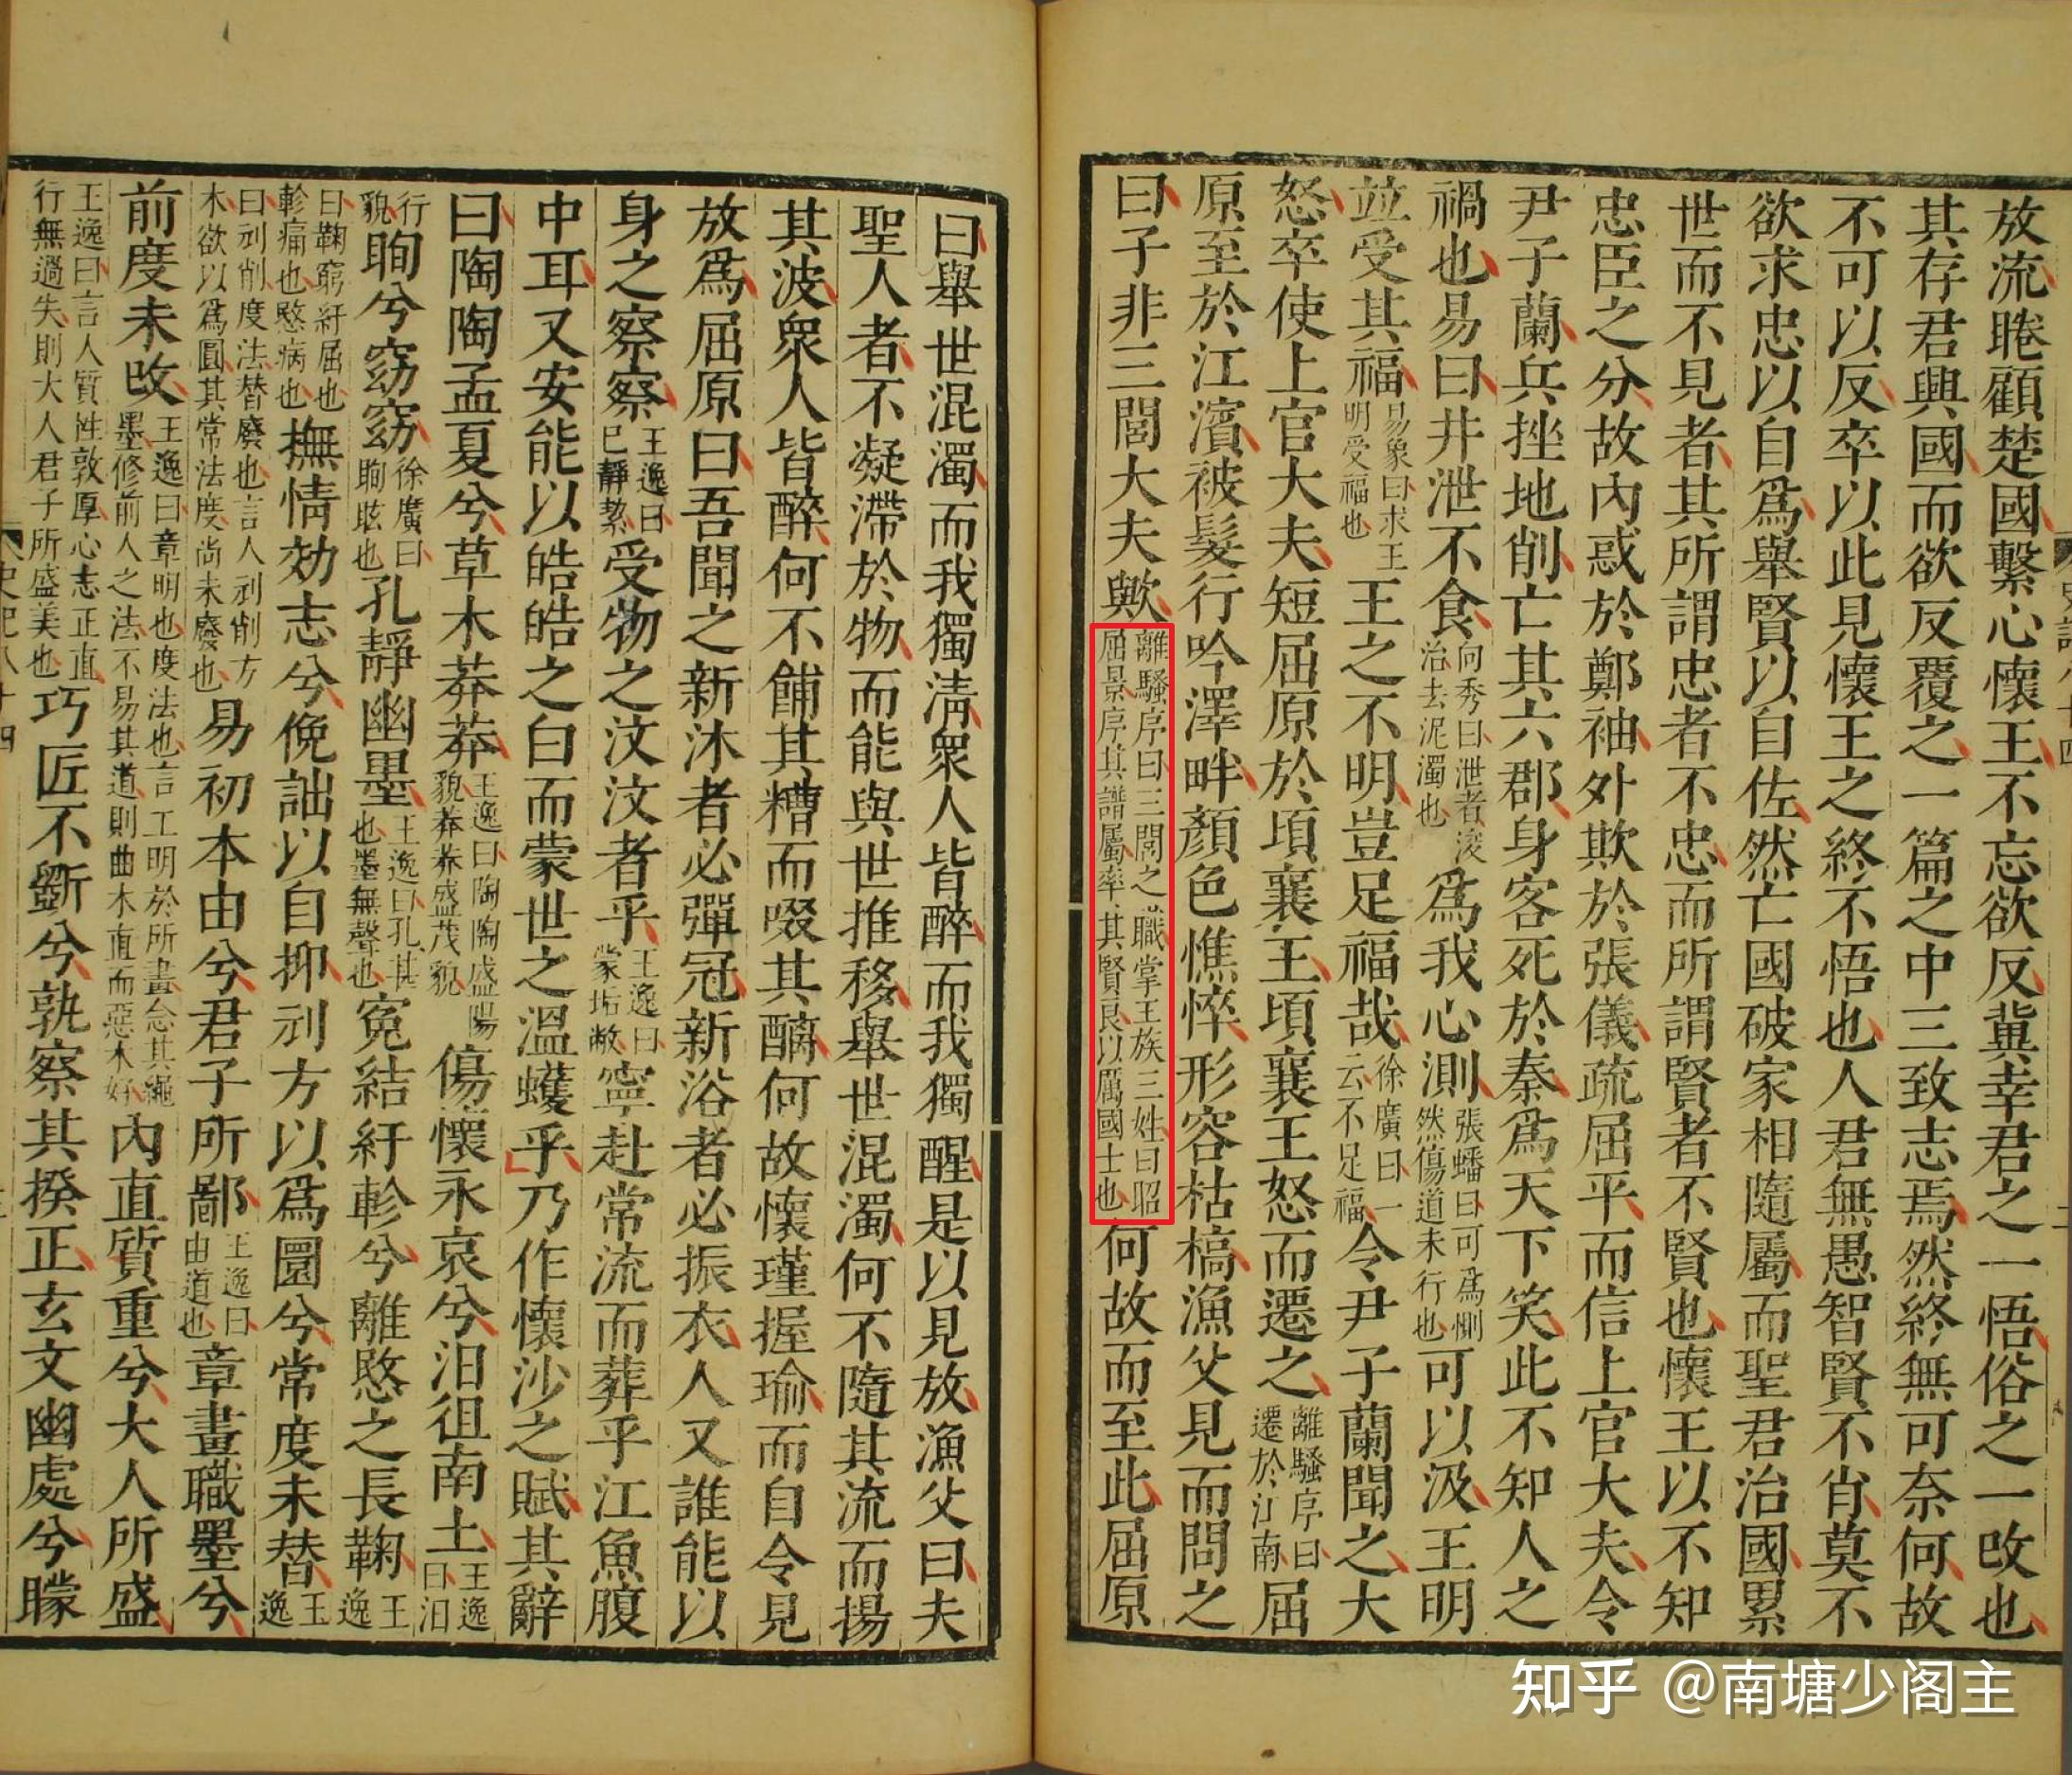 放流睠顧楚國繫心懷王不忘欲反冀幸君之一悟俗之一改也
其存君興國而欲反覆之一篇之中三致志焉然終無可奈何故
不可以反卒以此見懷王之終不悟也人君無愚智賢不肖莫不
欲求忠以自爲舉賢以自佐然亡國破家相隨屬而聖君治國累
世而不見者其所謂忠者不忠而所謂賢者不賢也懷王以不知
忠臣之分故內惑於鄭袖外欺於張儀疏屈平而信上官大夫令
尹子蘭兵挫地削亡其六郡身客死於秦爲天下笑此不知人之
禍也易曰井泄不食向秀曰泄者浚治去泥濁也爲我心測張璠曰可爲惻然傷道未行也可以汲王明
竝受其福易象曰求王明受福也王之不明豈足福哉徐廣曰一云不足福令尹子蘭聞之大
怒卒使上官大夫短屈原於頃襄王頃襄王怒而遷之離騷序曰遷於江南屈
原至於江濱被髮行吟澤畔顏色憔悴形容枯槁漁父見而問之
曰子非三閭大夫歟離騷序曰三閭之職掌王族三姓曰昭屈景序其譜屬率其賢良以厲國士也何故而至此屈原
曰舉世混濁而我獨淸衆人皆醉而我獨醒是以見放漁父曰夫
聖人者不凝滯於物而能與世推移舉世混濁何不隨其流而揚
其波衆人皆醉何不餔其糟而啜其醨何故懷瑾握瑜而自令見
放爲屈原曰吾聞之新沐者必彈冠新浴者必振衣人又誰能以
身之察察王逸曰已靜絜受物之汶汶者乎王逸曰蒙垢敝寧赴常流而葬乎江魚腹
中耳又安能以皓皓之白而蒙世之溫蠖乎乃作懷沙之賦其辭
曰陶陶孟夏兮草木莽莽王逸曰陶陶盛陽貌莽莽盛茂貌傷懷永哀兮汩徂南土王逸曰汩
行貌眴兮窈窈徐廣曰眴眩也孔靜幽墨王逸曰孔甚也墨無聲也冤結紆軫兮離愍之長鞠王逸
曰鞠窮紆屈也軫痛也愍病也撫情効志兮俛詘以自抑刓方以爲圜兮常度未替王逸
曰刓削度法替廢也言人刓削方木欲以爲圓其常法度尚未廢也易初本由兮君子所鄙王逸曰由道也章畫職墨兮
前度未改王逸曰章明也度法也言工明於所畫念其繩墨修前人之法不易其道則曲木直而惡木好內直質重兮大人所盛
王逸曰言人質性敦厚心志正直行無過失則大人君子所盛美也巧匠不斲兮孰察其揆正玄文幽處兮矇
史記八十四
知乎 @南塘少阁主